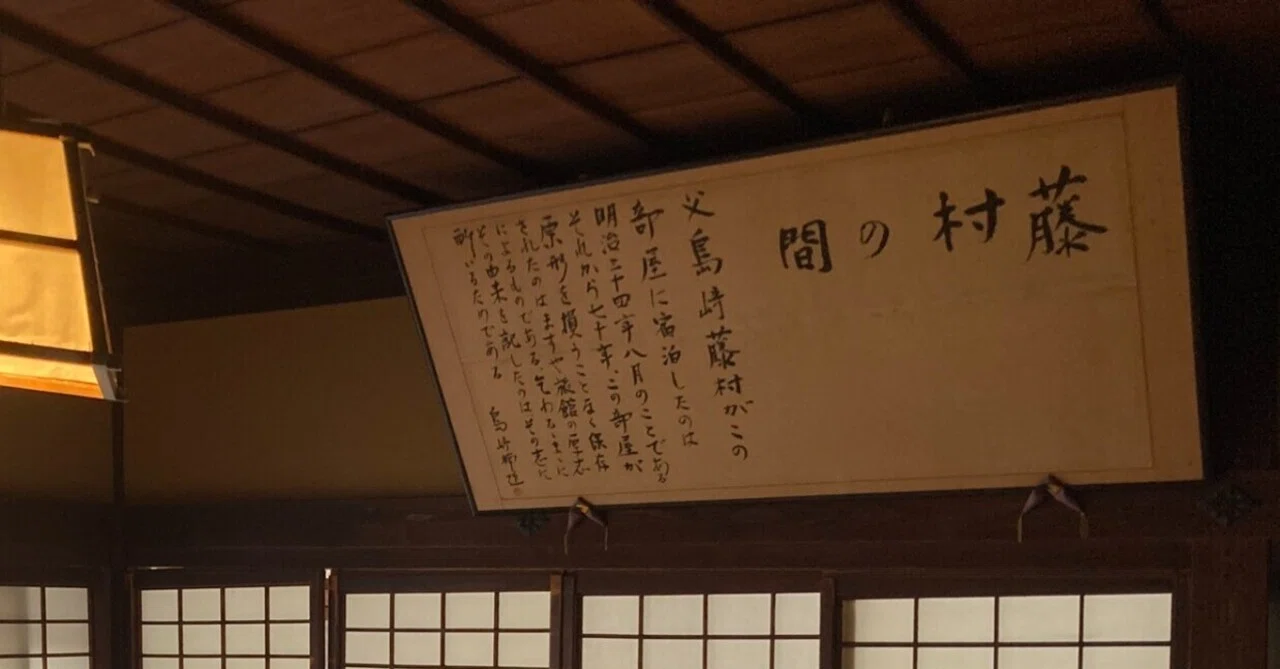 藤村の間
父島崎藤村がこの
部屋に宿泊したのは
明治三十四年八月のことである
それから七十年、この部屋が
原形を損うことなく保存
されたのはますや旅館の厚志
によるものである、乞わるるままに
その由来を記したのはその志に
酬いるためである 島崎